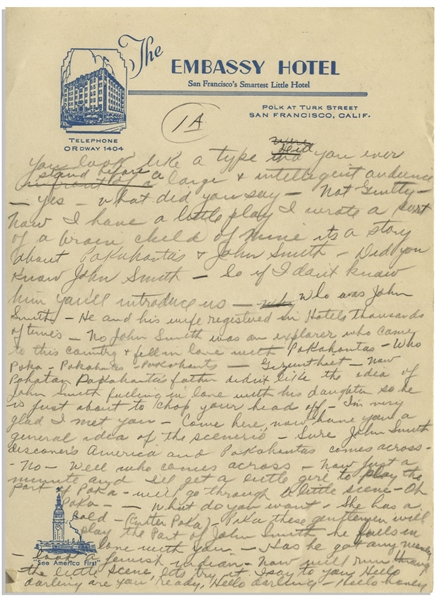 The
EMBASSY HOTEL
San Francisco's Smartest Little Hotel
POLK AT TURK STREET
SAN FRANCISCO, CALIF.
TELEPHONE
ORDWAY 1404
1A
You look like a type were you ever
stand before a large & intelligent audience
- yes - what did you say - Not Guilty -
Now I have a little play I wrote a part
of a brain child of mine its a story
about Pokahantas & John Smith - Did you
Know John Smith - So if I don't know
him you'll introduce us - who was John
Smith - He and his wife registred in Hotels thousands
of times - No John Smith was an explorer who came
to this country & fell in love with Pokahontas - Who
Poka - Pokahontas - Now
Pohatan Pokahantas father didnt like the idea of
John Smith falling in love with his daughter so he
is just about to chop your head off - I'm very
glad I met you - Come here now thats your a
general idea of the scenerio - Sure John Smith
discovers America and Pokahuntas comes across -
- No - Well who comes across - Now just a
minute and Ill get a little girl to play the
part of Poka - will go through a little scene - Oh
Poka - What do you want - She has a
cold - (Enter Poka) - Poka these gentlemen will
play the Part of John Smith - he falls in
love with you - Has he got any money
Indian - Now will run through
the little scene, lets try it I say to you Hello
darling are you ready, Hello darling - Hello honey
See America First